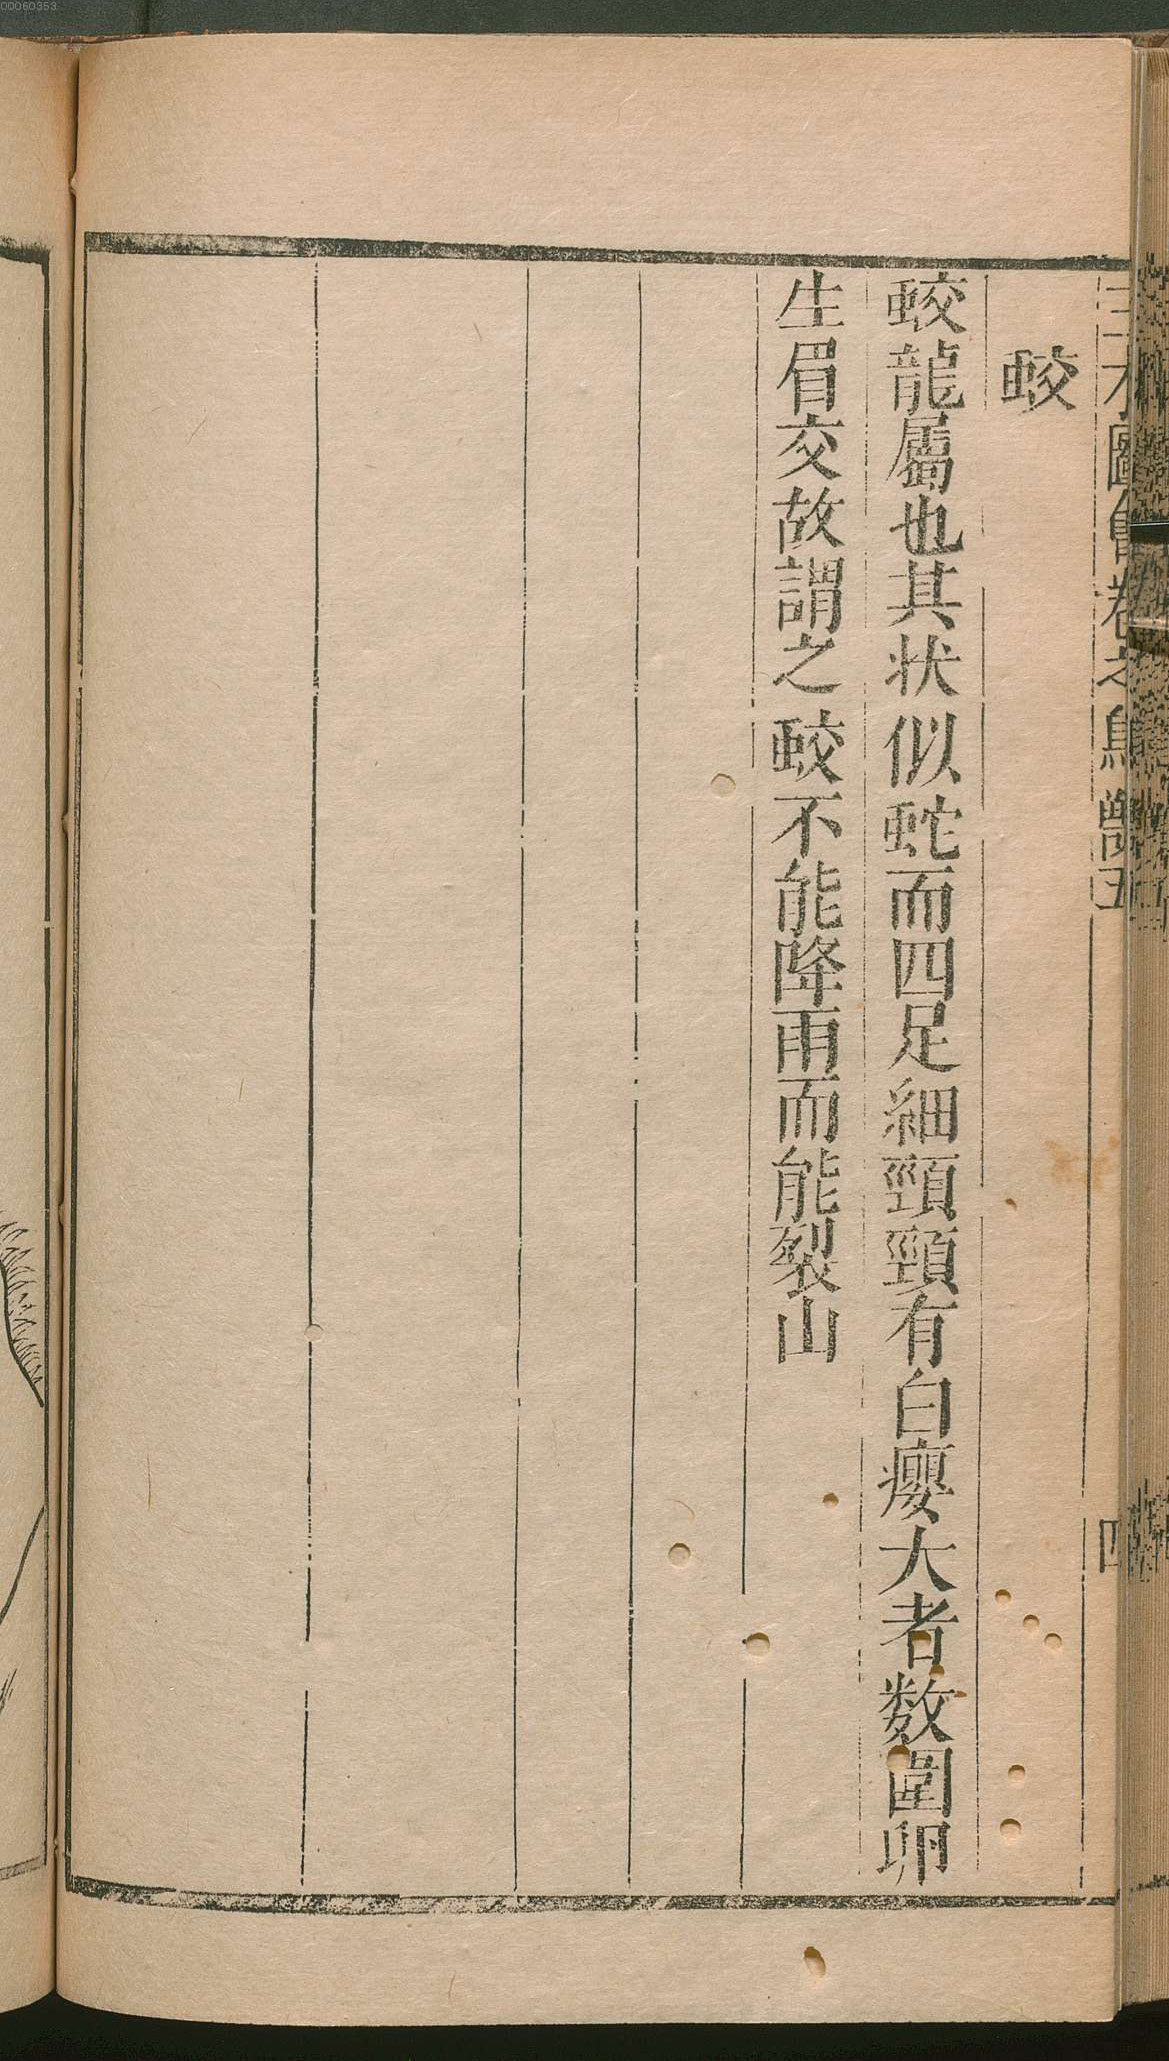 00060353
三才圖會卷之鳥獸五 四
蛟
蛟龍屬也其状似蛇而四足細頸頸有白癭大者数圍卵
生眉交故謂之蛟不能降雨而能裂山